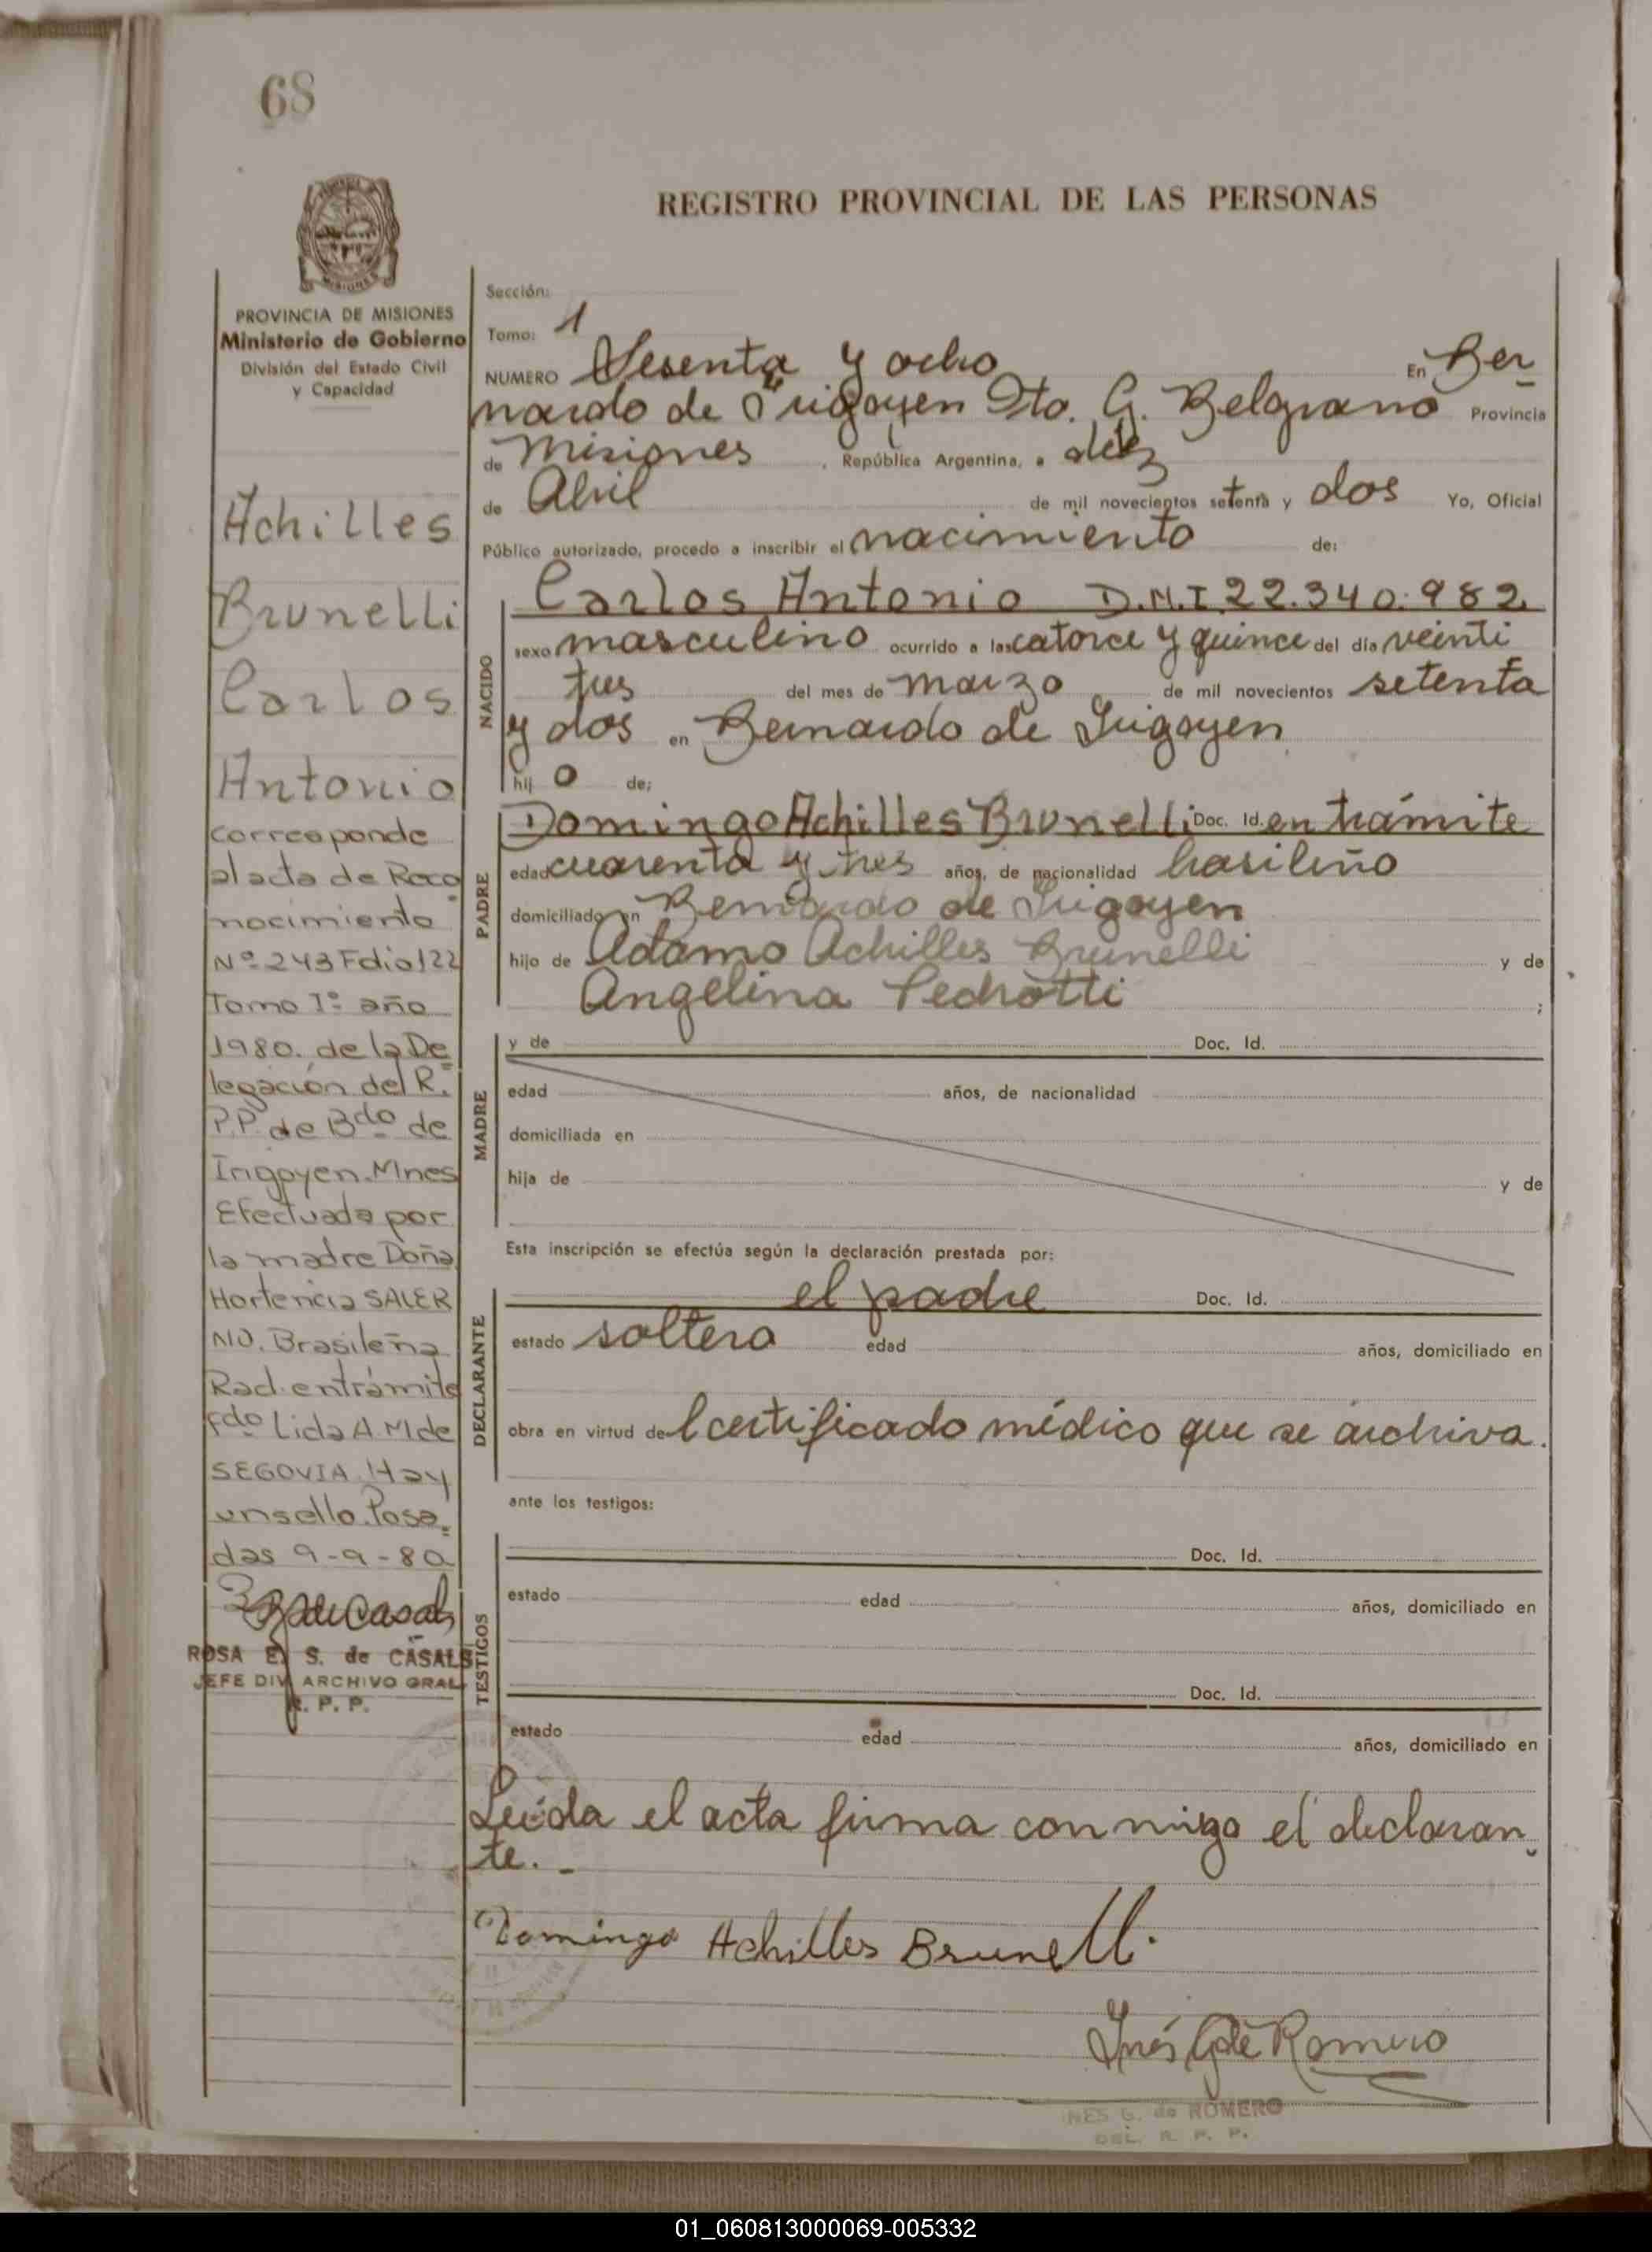 68
REGISTRO PROVINCIAL DE LAS PERSONAS
MISIONES
PROVINCIA DE MISIONES
Ministerio de Gobierno
División del Estado Civil
y Capacidad
Achilles
Brunelli
Carlos
Antonio
corresponde
al acta de Reco
nocimiento
Nº 243 Folio 122
Tomo Iº año
1980. de la De
legación del R.
P.P. de Bdo de
Irigoyen. Mnes
Efectuada por
la madre Doña
Hortencia SALER
NO. Brasileña
Rad. en trámite
Fdo Lida A. M de
SEGOVIA. Hay
un sello. Posa
das 9-9-80
ROSA E. S. de CASALS
JEFE DIV. ARCHIVO GRAL
R. P. P.
Sección:
Tomo: 1
NUMERO Sesenta y ocho En Ber
nardo de Irigoyen Dto. G. Belgrano Provincia
de Misiones, República Argentina, a diez
de Abril de mil novecientos setenta y dos Yo, Oficial
Público autorizado, procedo a inscribir el nacimiento de:
NACIDO
Carlos Antonio D.N.I 22.340.982.
sexo masculino ocurrido a las catorce y quince del día veinti
tres del mes de marzo de mil novecientos setenta
y dos en Bernardo de Irigoyen
hij o de;
PADRE
Domingo Achilles Brunelli Doc. Id. en trámite
edad cuarenta y tres años, de nacionalidad brasileño
domiciliado en Bernardo de Irigoyen
hijo de Adamo Achilles Brunelli y de
Angelina Pedrotti ;
MADRE
y de Doc. Id.
edad años, de nacionalidad
domiciliada en
hija de y de
Esta inscripción se efectúa según la declaración prestada por:
DECLARANTE
el padre Doc. Id.
estado soltero edad años, domiciliado en
obra en virtud del certificado médico que se archiva.
ante los testigos:
TESTIGOS
Doc. Id.
estado edad años, domiciliado en
Doc. Id.
estado edad años, domiciliado en
Leída el acta firma conmigo el declaran
te. -
Domingo Achilles Brunelli.
Inés G de Romero
INES G. de ROMERO
DEL. R. P. P.
01_060813000069-005332